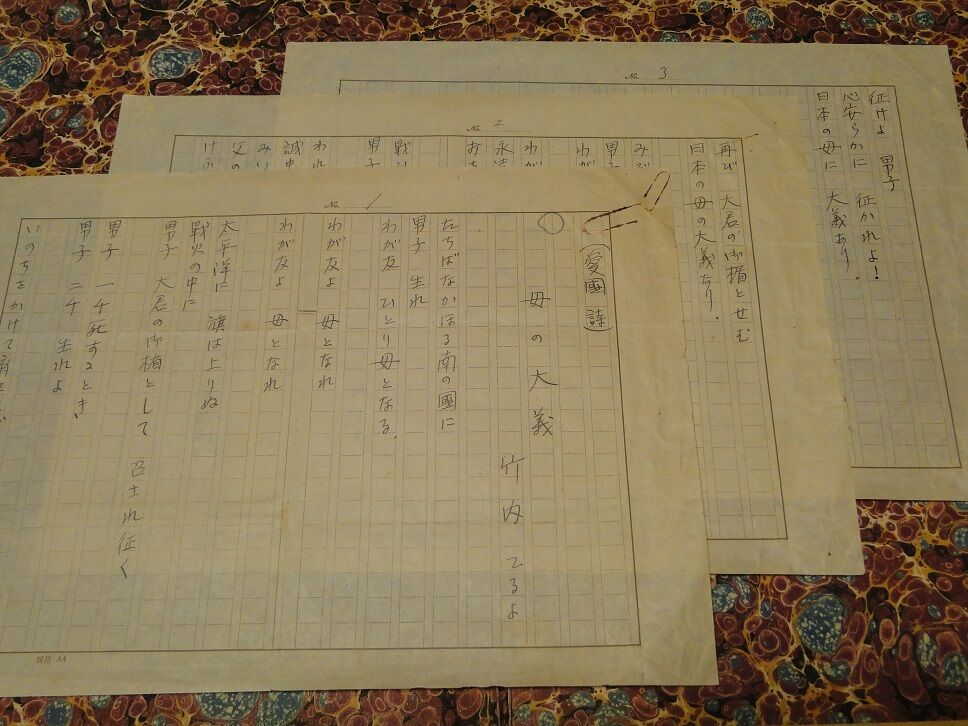 No. 1
(愛國詩)
母の大義
竹内てるよ
たちばなかほる南の國に
男子 生れ
わが友 ひとり母となる。
わが友よ 母となれ
わが友よ 母となれ
太平洋に 旗は上りぬ
戰火の中に
男子 大君の御楯として 召され征く
男子 一千死すとき
男子 二千 生れよ
いのちをかけて
規格 A4
No. 2
再び 大君の御楯とせむ
日本の母の大義なり。
男子
わが
わが
戰ひ
男子
われ
父の
No. 3
征けよ 男子
心安らかに 征かれよ!
日本の母に 大義あり。